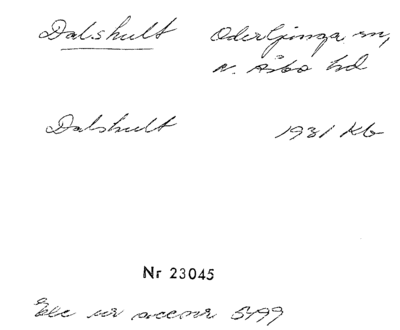 Dalshult Oderljunga sn,
N. Åsbo hd
Dalshult 1931 Kb
Nr 23045
Exc ur accnr 5199